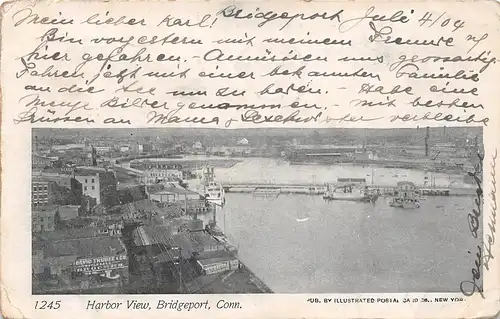 Mein lieber Karl! Bridgeport Juli 4/04
Bin vorgestern mit meinem Freunde
hier gefahren. - Amüsiren uns grossartig.
Fahren jetzt mit einer bekannten Familie
an die See um zu baden. - Habe eine
Menge Bilder genommen. - mit besten
Grüssen an Mama verbleibe
Dein Bruder
Hermann
DAVID TRUBEE & CO.
1245 HARBOR VIEW, BRIDGEPORT, CONN. PUB. BY ILLUSTRATED POSTAL CARD CO., NEW YORK